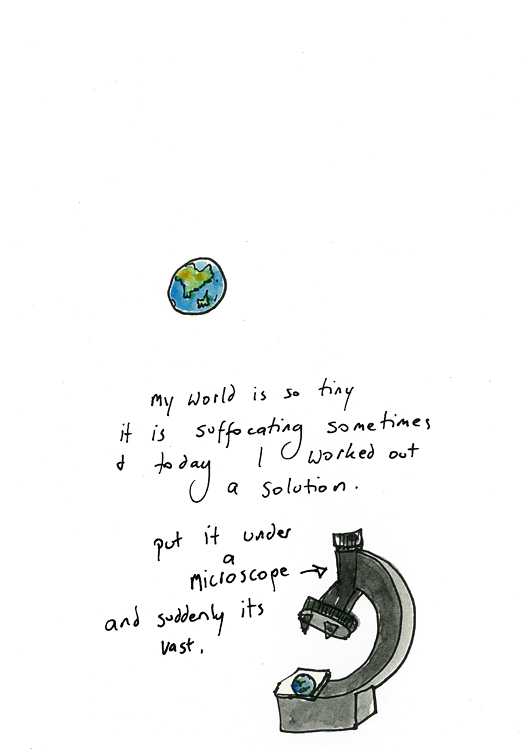 my world is so tiny
it is suffocating sometimes
& today I worked out
a solution.
put it under
a
microscope →
and suddenly its
vast.